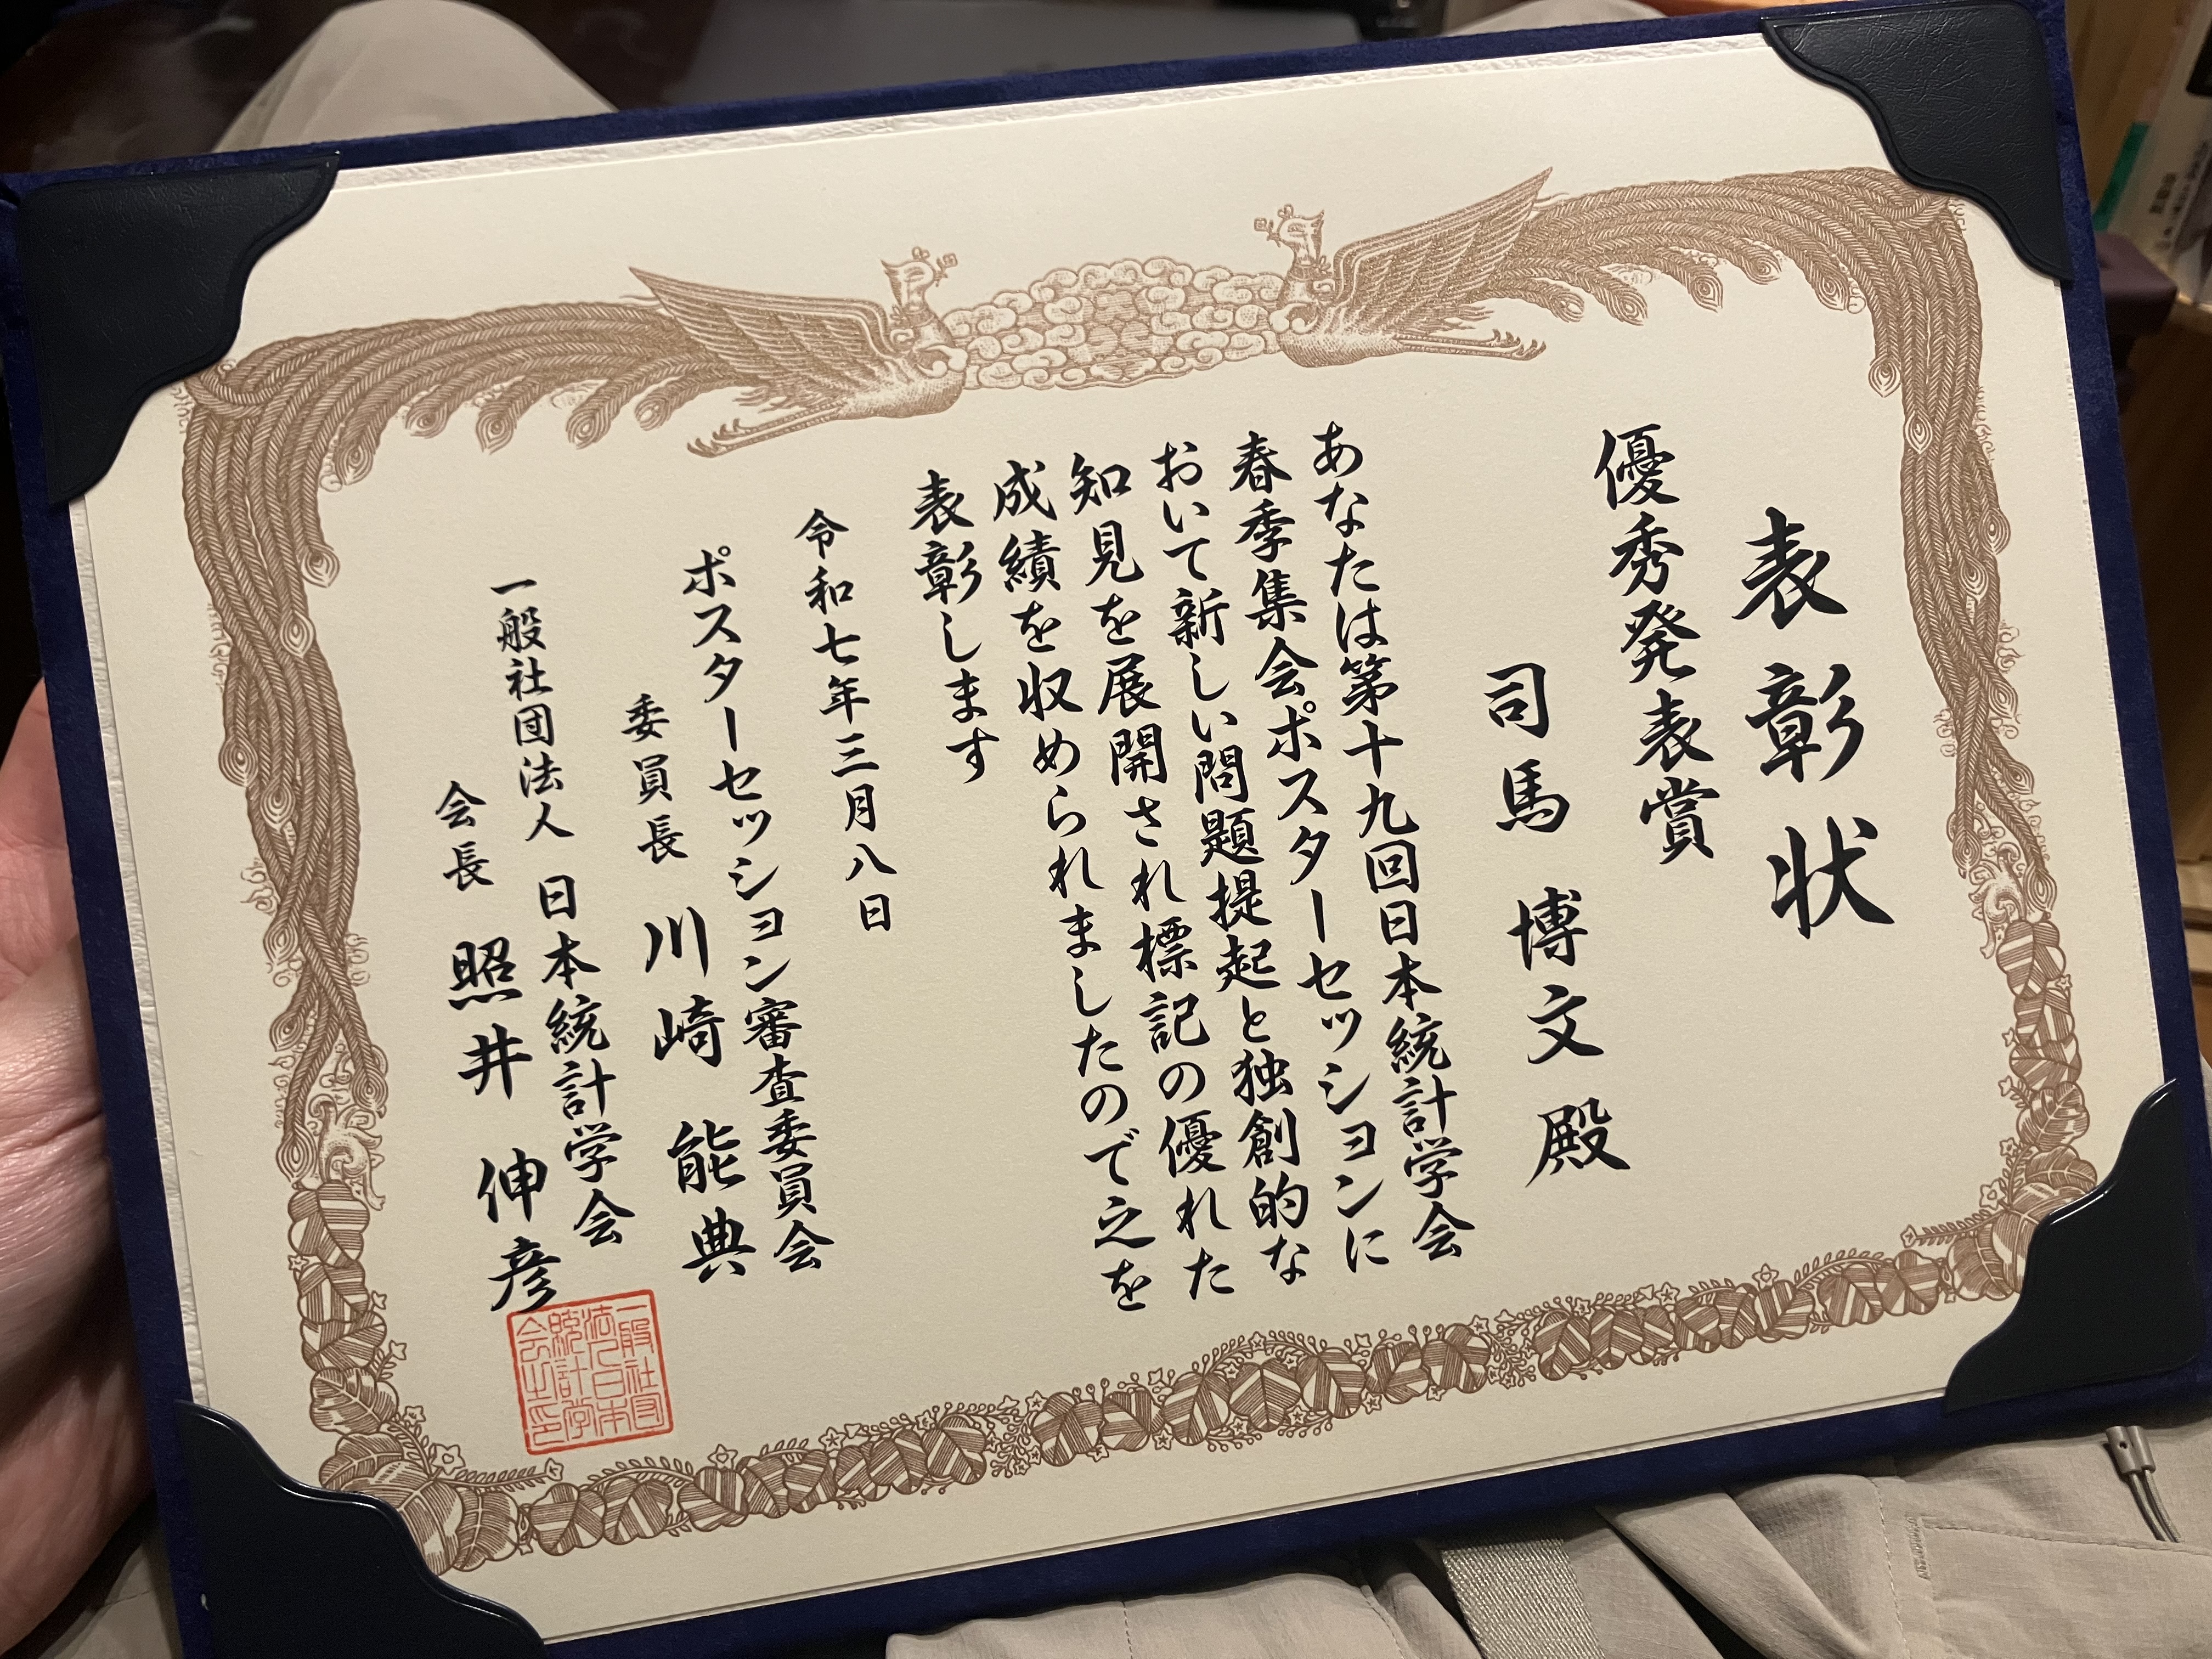 表彰状
優秀発表賞
司馬 博文 殿
あなたは第十九回日本統計学会
春季集会ポスターセッションに
おいて新しい問題提起と独創的な
知見を展開され標記の優れた
成績を収められましたので之を
表彰します
令和七年三月八日
ポスターセッション審査委員会
委員長 川崎 能典
一般社団法人 日本統計学会
会長 照井 伸彦
一般社団
法人日本
統計学
会之印